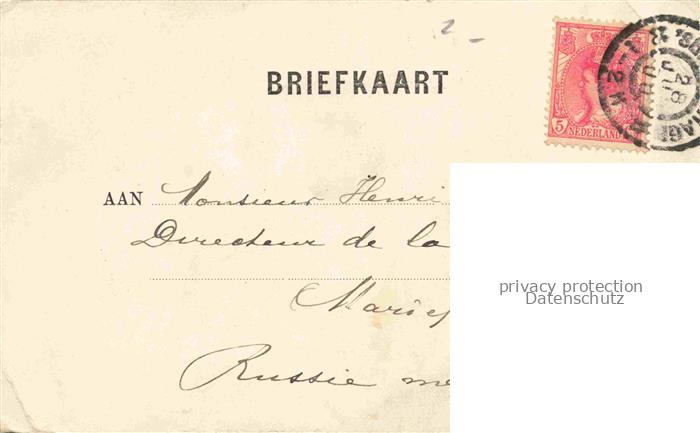 BRIEFKAART
5
NEDERLAND
28
AAN Monsieur Henri
Directeur de la
Russie
privacy protection
Datenschutz